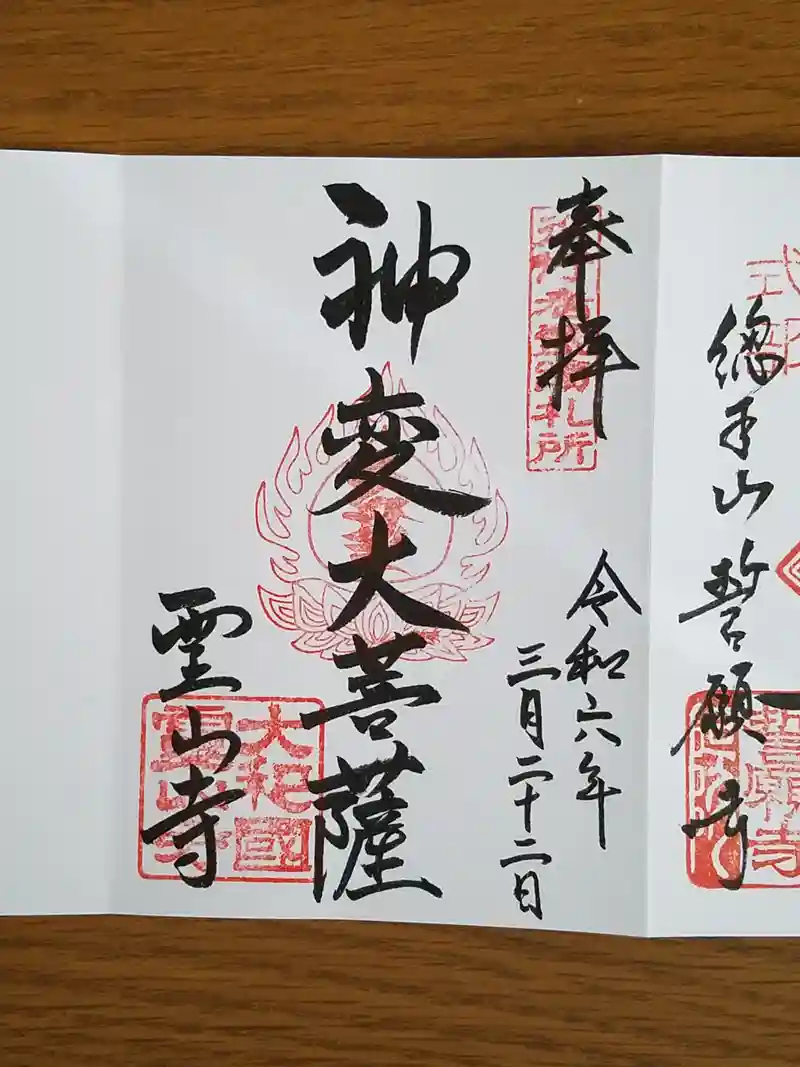 總本山誓願寺
誓願寺
奉拝
札所
令和六年
三月二十二日
神変大菩薩
霊山寺
大和國
霊山寺